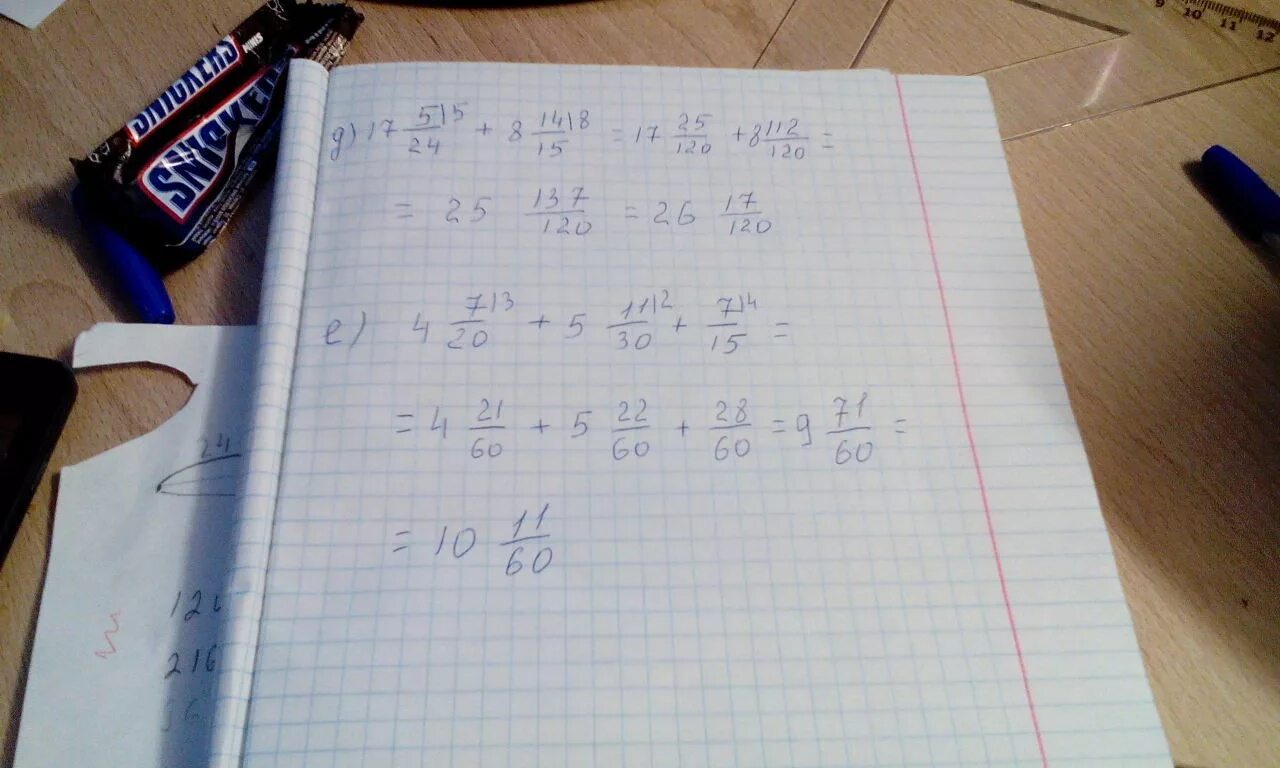 SNICKERS MINIS
SNICKERS
9 10 11 12
д) 17 5/24 |5 + 8 14/15 |8 = 17 25/120 + 8 112/120 =
= 25 137/120 = 26 17/120
е) 4 7/20 |3 + 5 11/30 |2 + 7/15 |4 =
= 4 21/60 + 5 22/60 + 28/60 = 9 71/60 =
= 10 11/60
24
216